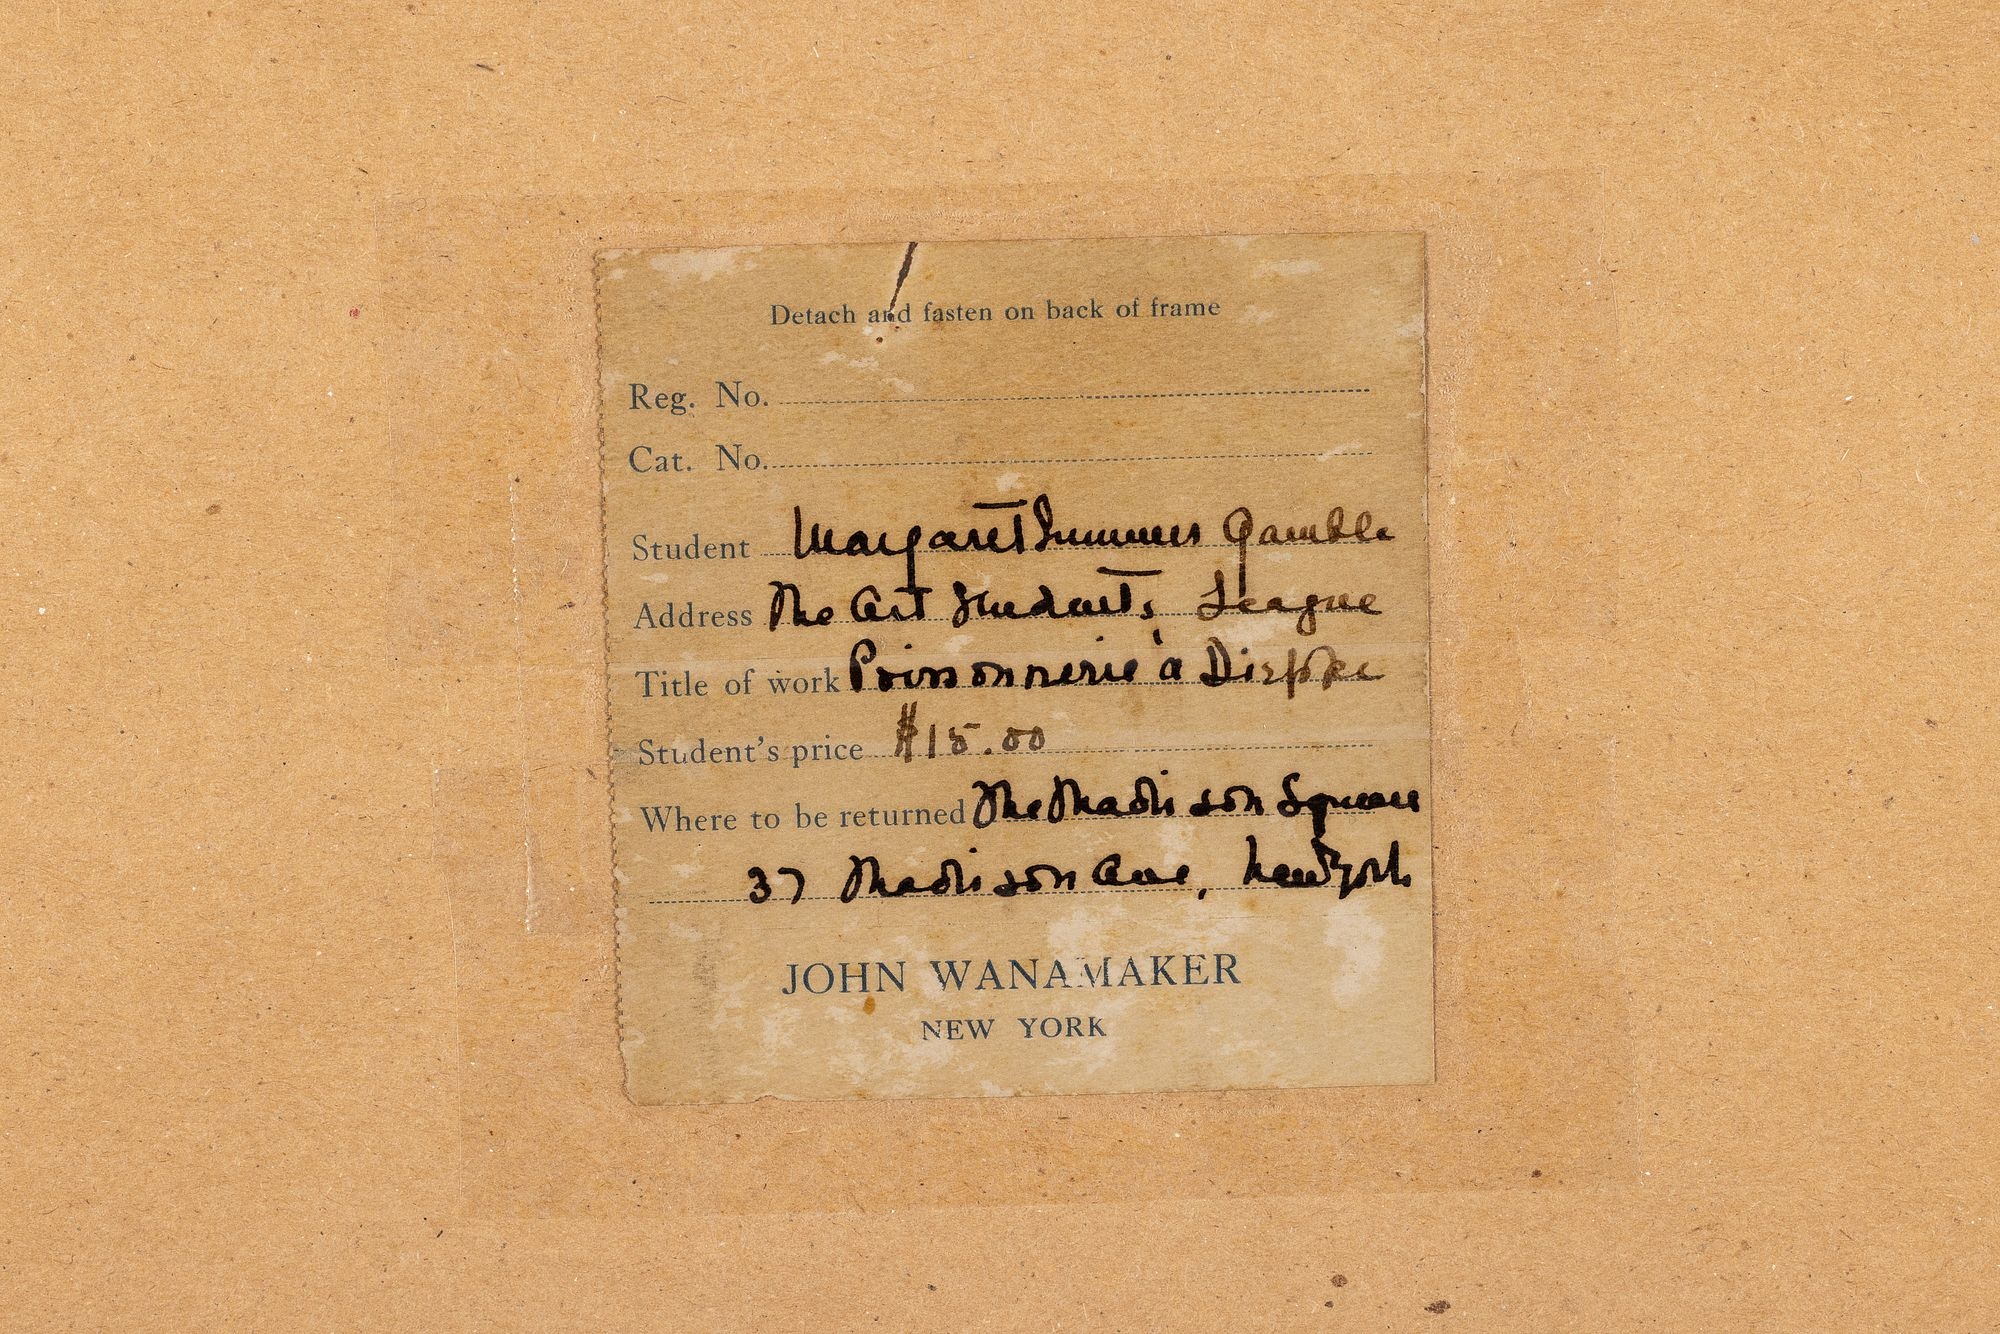 Detach and fasten on back of frame
Reg. No.
Cat. No.
Student Margaret Summer Gamble
Address The Art Students League
Title of work Poissonnerie à Dieppe
Student's price $15.00
Where to be returned The Madison Square
37 Madison Ave, New York
JOHN WANAMAKER
NEW YORK